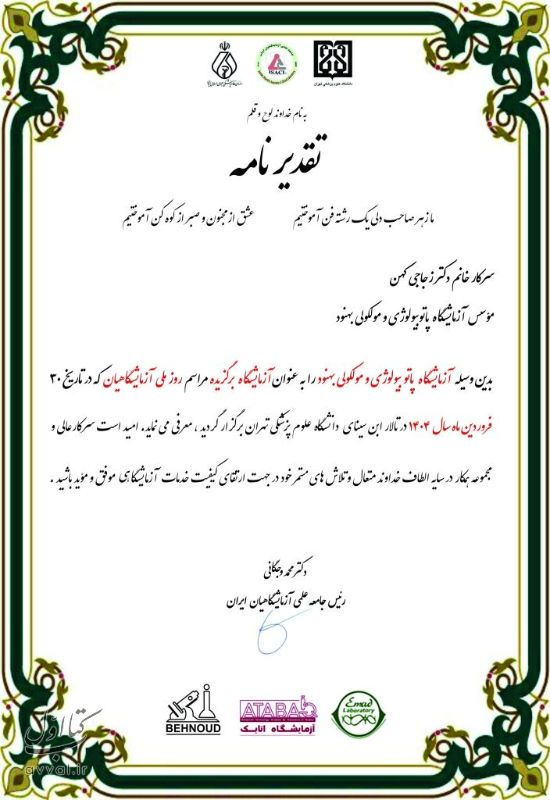 ISACL
به نام خداوند لوح و قلم
تقدیر نامه
ما ز هر صاحب دلی یک رشته فن آموختیم عشق از مجنون و صبر از کوه کن آموختیم
سرکار خانم دکتر زجاجی کهن
مؤسس آزمایشگاه پاتوبیولوژی و مولکولی بهنود
بدین وسیله آزمایشگاه پاتوبیولوژی و مولکولی بهنود را به عنوان آزمایشگاه برگزیده مراسم روز ملی آزمایشگاهیان که در تاریخ ۳۰
فروردین ماه سال ۱۴۰۴ در تالار ابن سینای دانشگاه علوم پزشکی تهران برگزار گردید، معرفی می نماید. امید است سرکارعالی و
مجموعه همکار در سایه الطاف خداوند متعال و تلاش های مستمر خود در جهت ارتقای کیفیت خدمات آزمایشگاهی موفق و مؤید باشید .
دکتر محمد وجگانی
رئیس جامعه علمی آزمایشگاهیان ایران
BEHNOUD
ATABAK
آزمایشگاه اتابک
Emad
Laboratory
کتاب اول
avval.ir